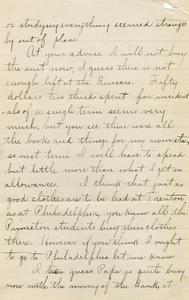 or studying everything seemed strangely out of place.
At your advice I will not buy
the suit now, I guess there is not
enough left at the Bureau. Fifty
dollars two thirds spent for incident-
als of a single term seems very
much, but you see there were all
the books and things for my room etc,
so next term I will have to spend
but little more than what I get in
allowances. I think that just as
good clothes are to be had at Trenton,
as at Philadelphia, you know all the
Princeton students buy their clothes
there. However if you think I ought
to go to Philadelphia let me know
I guess Papa is quite busy
now with the moving of the Bank, it